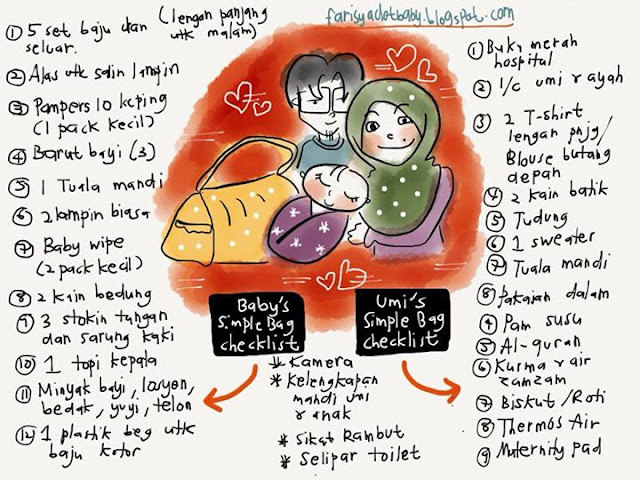 farisyadotbaby.blogspot.com
① 5 set baju dan (lengan panjang
seluar. utk malam)
② Alas utk salin lampin
③ Pampers 10 keping
(1 pack kecil)
④ Barut bayi (3)
⑤ 1 Tuala mandi
⑥ 2 lampin biasa
⑦ Baby wipe
(2 pack kecil)
⑧ 2 kain bedung
⑨ 3 stokin tangan
dan sarung kaki
⑩ 1 topi kepala
⑪ Minyak bayi, losyen,
bedak, yuyi, telon
⑫ 1 plastik beg utk
baju kotor
Baby's
Simple Bag
checklist
Umi's
Simple Bag
checklist
* Kamera
* Kelengkapan
mandi umi
& anak
* Sikat Rambut
* Selipar toilet
① Buku merah
hospital
② I/c umi & ayah
③ 2 T-shirt
lengan pnjg/
Blouse butang
depan
④ 2 kain batik
⑤ Tudung
⑥ 1 sweater
⑦ Tuala mandi
⑧ pakaian dalam
④ Pam susu
⑤ Al-quran
⑥ Kurma & air
zamzam
⑦ Biskut / Roti
⑧ Thermos Air
⑨ Maternity pad